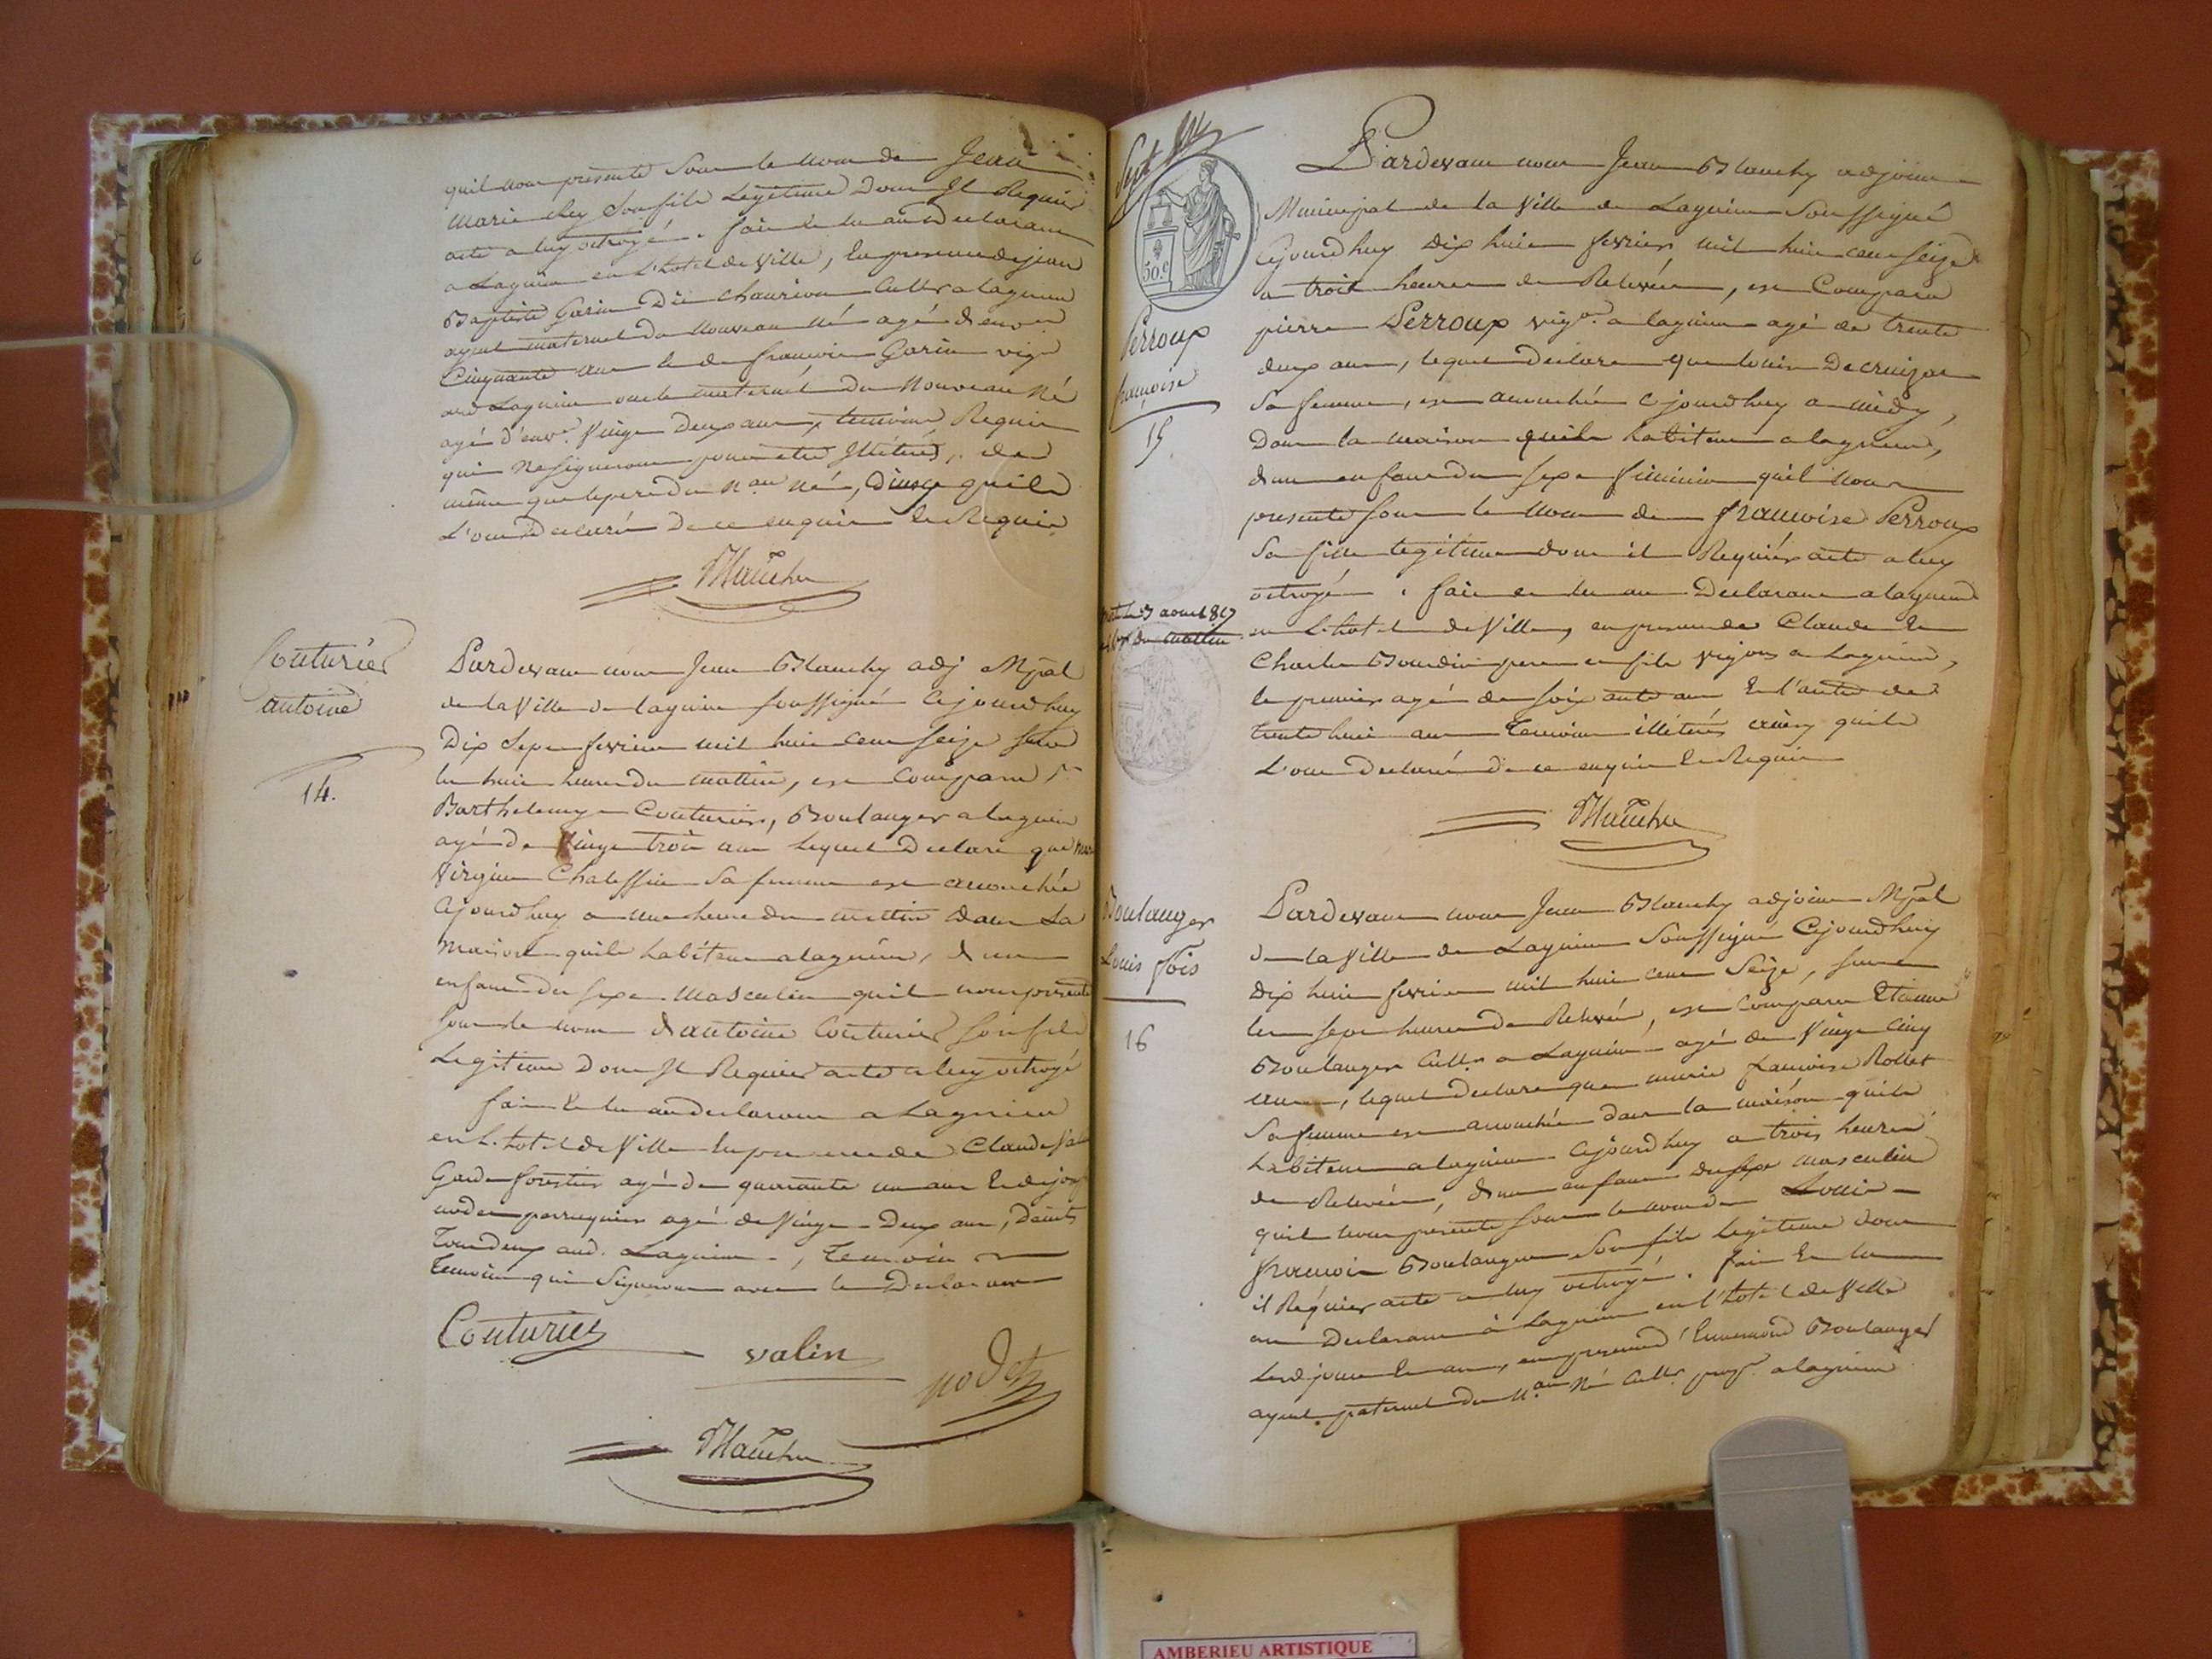 qu'il nous presente sous le nom de Jean
marie Rey son fils Legitime dont Il Requier
acte a luy octroyé. fait et lu au declarant
a Lagnieu en L'hotel de Ville, En presence de jean
Baptiste Garin Dit chaurion Cultr a lagnieu
ayeul maternel du Nouveau né agé d'env.on
Cinquante ans et de francois Garin vig.n
aud Lagnieu oncle maternel du Nouveau Né
agé d'env.n Vingt Deux ans, temoins Requis
qui Ne signeront pour etre Illétérés, de
même que le pere du N.au Né, Ainsy qu'ils
L'ont Declaré de ce enquis Et Requis
Blanchy
Couturier
antoine
14.
Pardevant nous Jean Blanchy adj Mpal
de la Ville de Lagnieu soussigné Cejourdhuy
Dix Sept fevrier mil huit cent seize sur
les huit heures du mattin, est Comparu s.r
Barthelemy Couturier, Boulanger a lagnieu
agé de Vingt trois ans Lequel Declare que
Virginie Chaleffin Sa femme est accouchée
Cejourdhuy a une heure du mattin dans La
Maison qu'ils habitent a lagnieu, d'un
enfant du sexe Masculin qu'il nous presente
sous le nom d'antoine Couturier son fils
Legitime dont Il Requier acte a luy octroyé
fait Et lu au declarant a Lagnieu
en L'hotel de Ville En presence de Claude Valin
Garde forestier agé de quarante un ans Et de jos
nodet perruquier agé de Vingt Deux ans, dem.ts
Tous deux aud. Lagnieu, Temoins
Temoins qui Signeront avec le Declarant
Couturier
valin
nodet
Blanchy
Sept
50.c
Perroux
françoise
15
Pardevant nous Jean Blanchy adjoint
Municipal de la Ville de Lagnieu Soussigné
Cejourdhuy Dix huit fevrier mil huit cent seize
a trois heures de Relevée, est Comparu
pierre Perroux vig.on a lagnieu agé de trente
deux ans, lequel declare que louise Decruizat
Sa femme, est accouchée Cejourdhuy a midy,
Dans la maison qu'ils habitent a lagnieu,
d'un enfant du sexe feminin qu'il nous
presente sous le nom de françoise Perroux
Sa fille legitime dont il Requier acte a luy
octroyé. fait et lu au Declarant a lagnieu
en L'hotel de Ville, en presence de Claude Et
Charles Bourdin pere et fils vig.ons a Lagnieu,
le premier agé de soixante ans Et l'autre de
trente huit ans Temoins illétérés ainsy qu'ils
L'ont Declaré de ce enquis Et Requis
Blanchy
aout 1817
du mattin
Boulanger
Louis fois
16
Pardevant nous Jean Blanchy adjoint Mpal
de la Ville de Lagnieu Soussigné Cejourdhuy
Dix huit fevrier mil huit cent Seize, sur
les sept heures de Relevée, est Comparu Etienne
Boulanger Cultr. a Lagnieu agé de Vingt Cinq
ans, lequel declare que marie francoise Rollet
Sa femme est accouchée dans la maison qu'ils
habitent a lagnieu Cejourdhuy a trois heures
de Relevée, d'un enfant du sexe masculin
qu'il nous presente sous le nom de Louis
francois Boulanger Son fils legitime dont
il Requier acte a luy octroyé. fait Et lu
au Declarant à Lagnieu en l'hotel de Ville
Lesd jour Et an, en presence d'Ennemond Boulanger
ayeul paternel du N.au Né Cultr. prop.re a lagnieu
AMBERIEU ARTISTIQUE